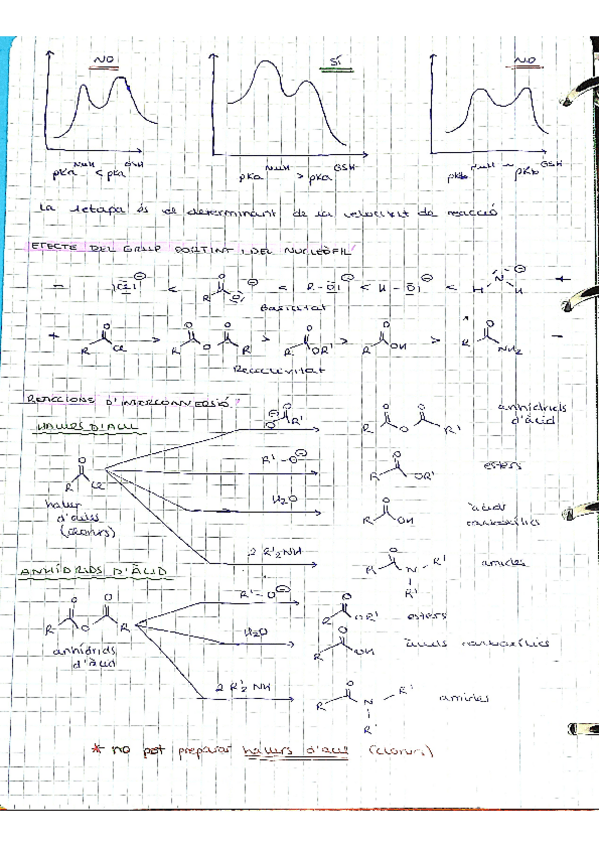 NO SÍ NO
pKa NuH < pKa GSH pKa NuH > pKa GSH pKa NuH ~ pKb GSH
La 1 etapa és el determinant de la velocitat de reacció
EFECTE DEL GRUP SORTINT I DEL NUCLEÒFIL
− Cl ⊖ < R O ⊖ < R-O ⊖ < H-O ⊖ < H N H ⊖ +
Basicitat
+ R O Cl > R O O O R > R O OR' > R O OH > R O NH2 −
Reactivitat
REACCIONS D'INTERCONVERSIÓ
HALURS D'ACIL
⊖O O R' R O O O R' anhídrids d'àcid
R'-O⊖ R O OR' esters
R O Cl
halur d'acil (clorurs)
H2O R O OH àcids carboxílics
2 R'2NH R O N R' R' amides
ANHÍDRIDS D'ÀCID
R'-O⊖ R O OR' esters
R O O O R
anhídrids d'àcid
H2O R O OH àcids carboxílics
2 R'2NH R O N R' R' amides
* no pot preparar halurs d'acil (clorurs)